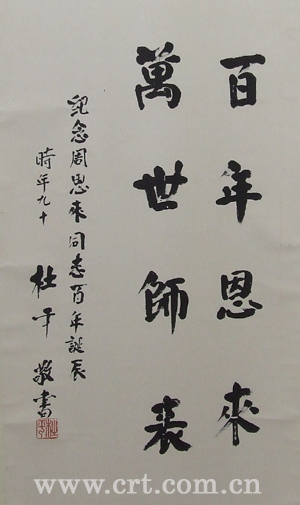 百年恩來
萬世師表
紀念周恩來同志百年誕辰
時年九十
杜平敬書
www.crt.com.cn